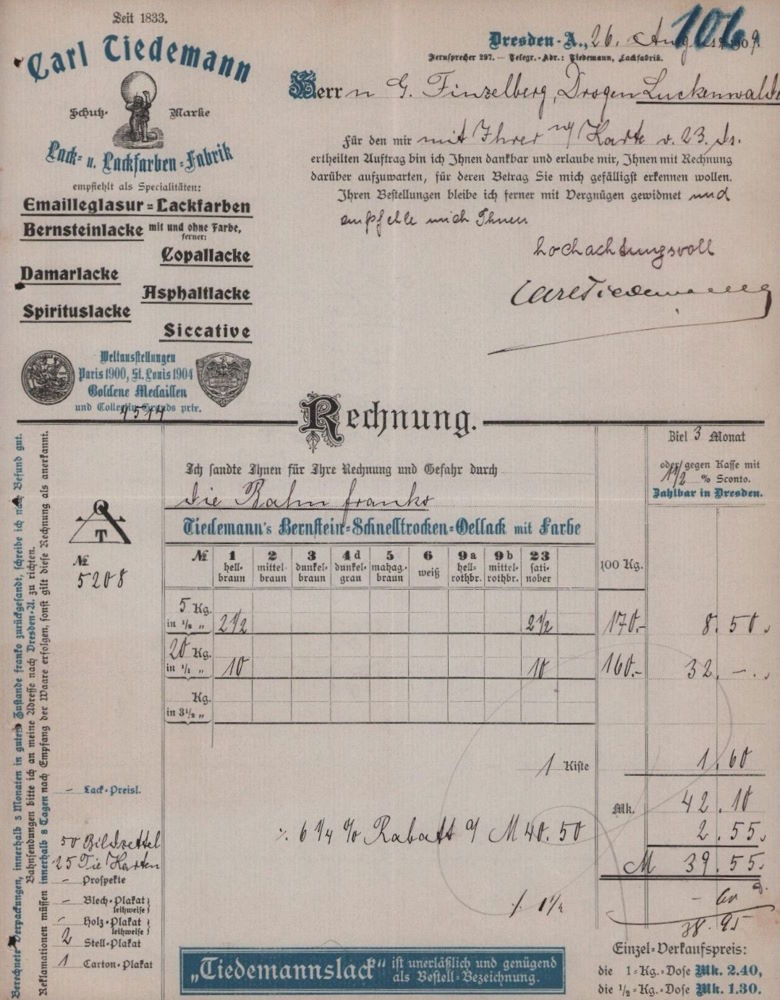 Seit 1833.
Carl Tiedemann
Schutz- Marke
Lack- u. Lackfarben-Fabrik
empfiehlt als Specialitäten:
Emailleglasur-Lackfarben
Bernsteinlacke mit und ohne Farbe,
ferner:
Copallacke
Damarlacke
Asphaltlacke
Spirituslacke
Siccative
Weltausstellungen
Paris 1900, St. Louis 1904
Goldene Medaillen
und Collectiv-Grands prix.
106
Dresden-A., 26. August 1909.
Fernsprecher 297. — Telegr.-Adr.: Tiedemann, Lackfabrik.
Herrn G. Finzelberg, Drogen Luckenwalde
Für den mir mit Ihrer Karte v. 23. ds.
ertheilten Auftrag bin ich Ihnen dankbar und erlaube mir, Ihnen mit Rechnung
darüber aufzuwarten, für deren Betrag Sie mich gefälligst erkennen wollen.
Ihren Bestellungen bleibe ich ferner mit Vergnügen gewidmet und
empfehle mich Ihnen
hochachtungsvoll
Carl Tiedemann
Rechnung.
Ziel 3 Monat
oder gegen Kasse mit
1 1/2 % Sconto.
Zahlbar in Dresden.
Ich sandte Ihnen für Ihre Rechnung und Gefahr durch
die Bahn franko
Tiedemann's Bernstein-Schnelltrocken-Oellack mit Farbe
T
№
5208
№ 1 hell-braun 2 mittel-braun 3 dunkel-braun 4d dunkel-grau 5 mahag.-braun 6 weiß 9a hell-rothbr. 9b mittel-rothbr. 23 sati-nober 100 Kg.
5 Kg. in 1/2 " 2 1/2 2 1/2 170.- 8.50.
20 Kg. in 1/1 " 10 10 160.- 32.-.
Kg.
in 3 1/2 "
1 Kiste 1.60
Mk. 42.10
% 6 1/4 % Rabatt M 40.50 2.55.
M 39.55.
% 1 1/2 - 60
38.95
— Lack-Preisl.
50 Bildzettel
25 Tie Karten
— Prospekte
— Blech-Plakat (leihweise)
— Holz-Plakat (leihweise)
2 Stell-Plakat
1 Carton-Plakat
„Tiedemannslack" ist unerläßlich und genügend
als Bestell-Bezeichnung.
Einzel-Verkaufspreis:
die 1-Kg.-Dose Mk. 2.40,
die 1/2-Kg.-Dose Mk. 1.30.
Berechnete Verpackungen, innerhalb 3 Monaten in gutem Zustande franko zurückgesandt, schreibe ich nach Befund gut.
Bahnsendungen bitte ich an meine Adresse nach Dresden-A. zu richten.
Reklamationen müssen innerhalb 8 Tagen nach Empfang der Waare erfolgen, sonst gilt diese Rechnung als anerkannt.